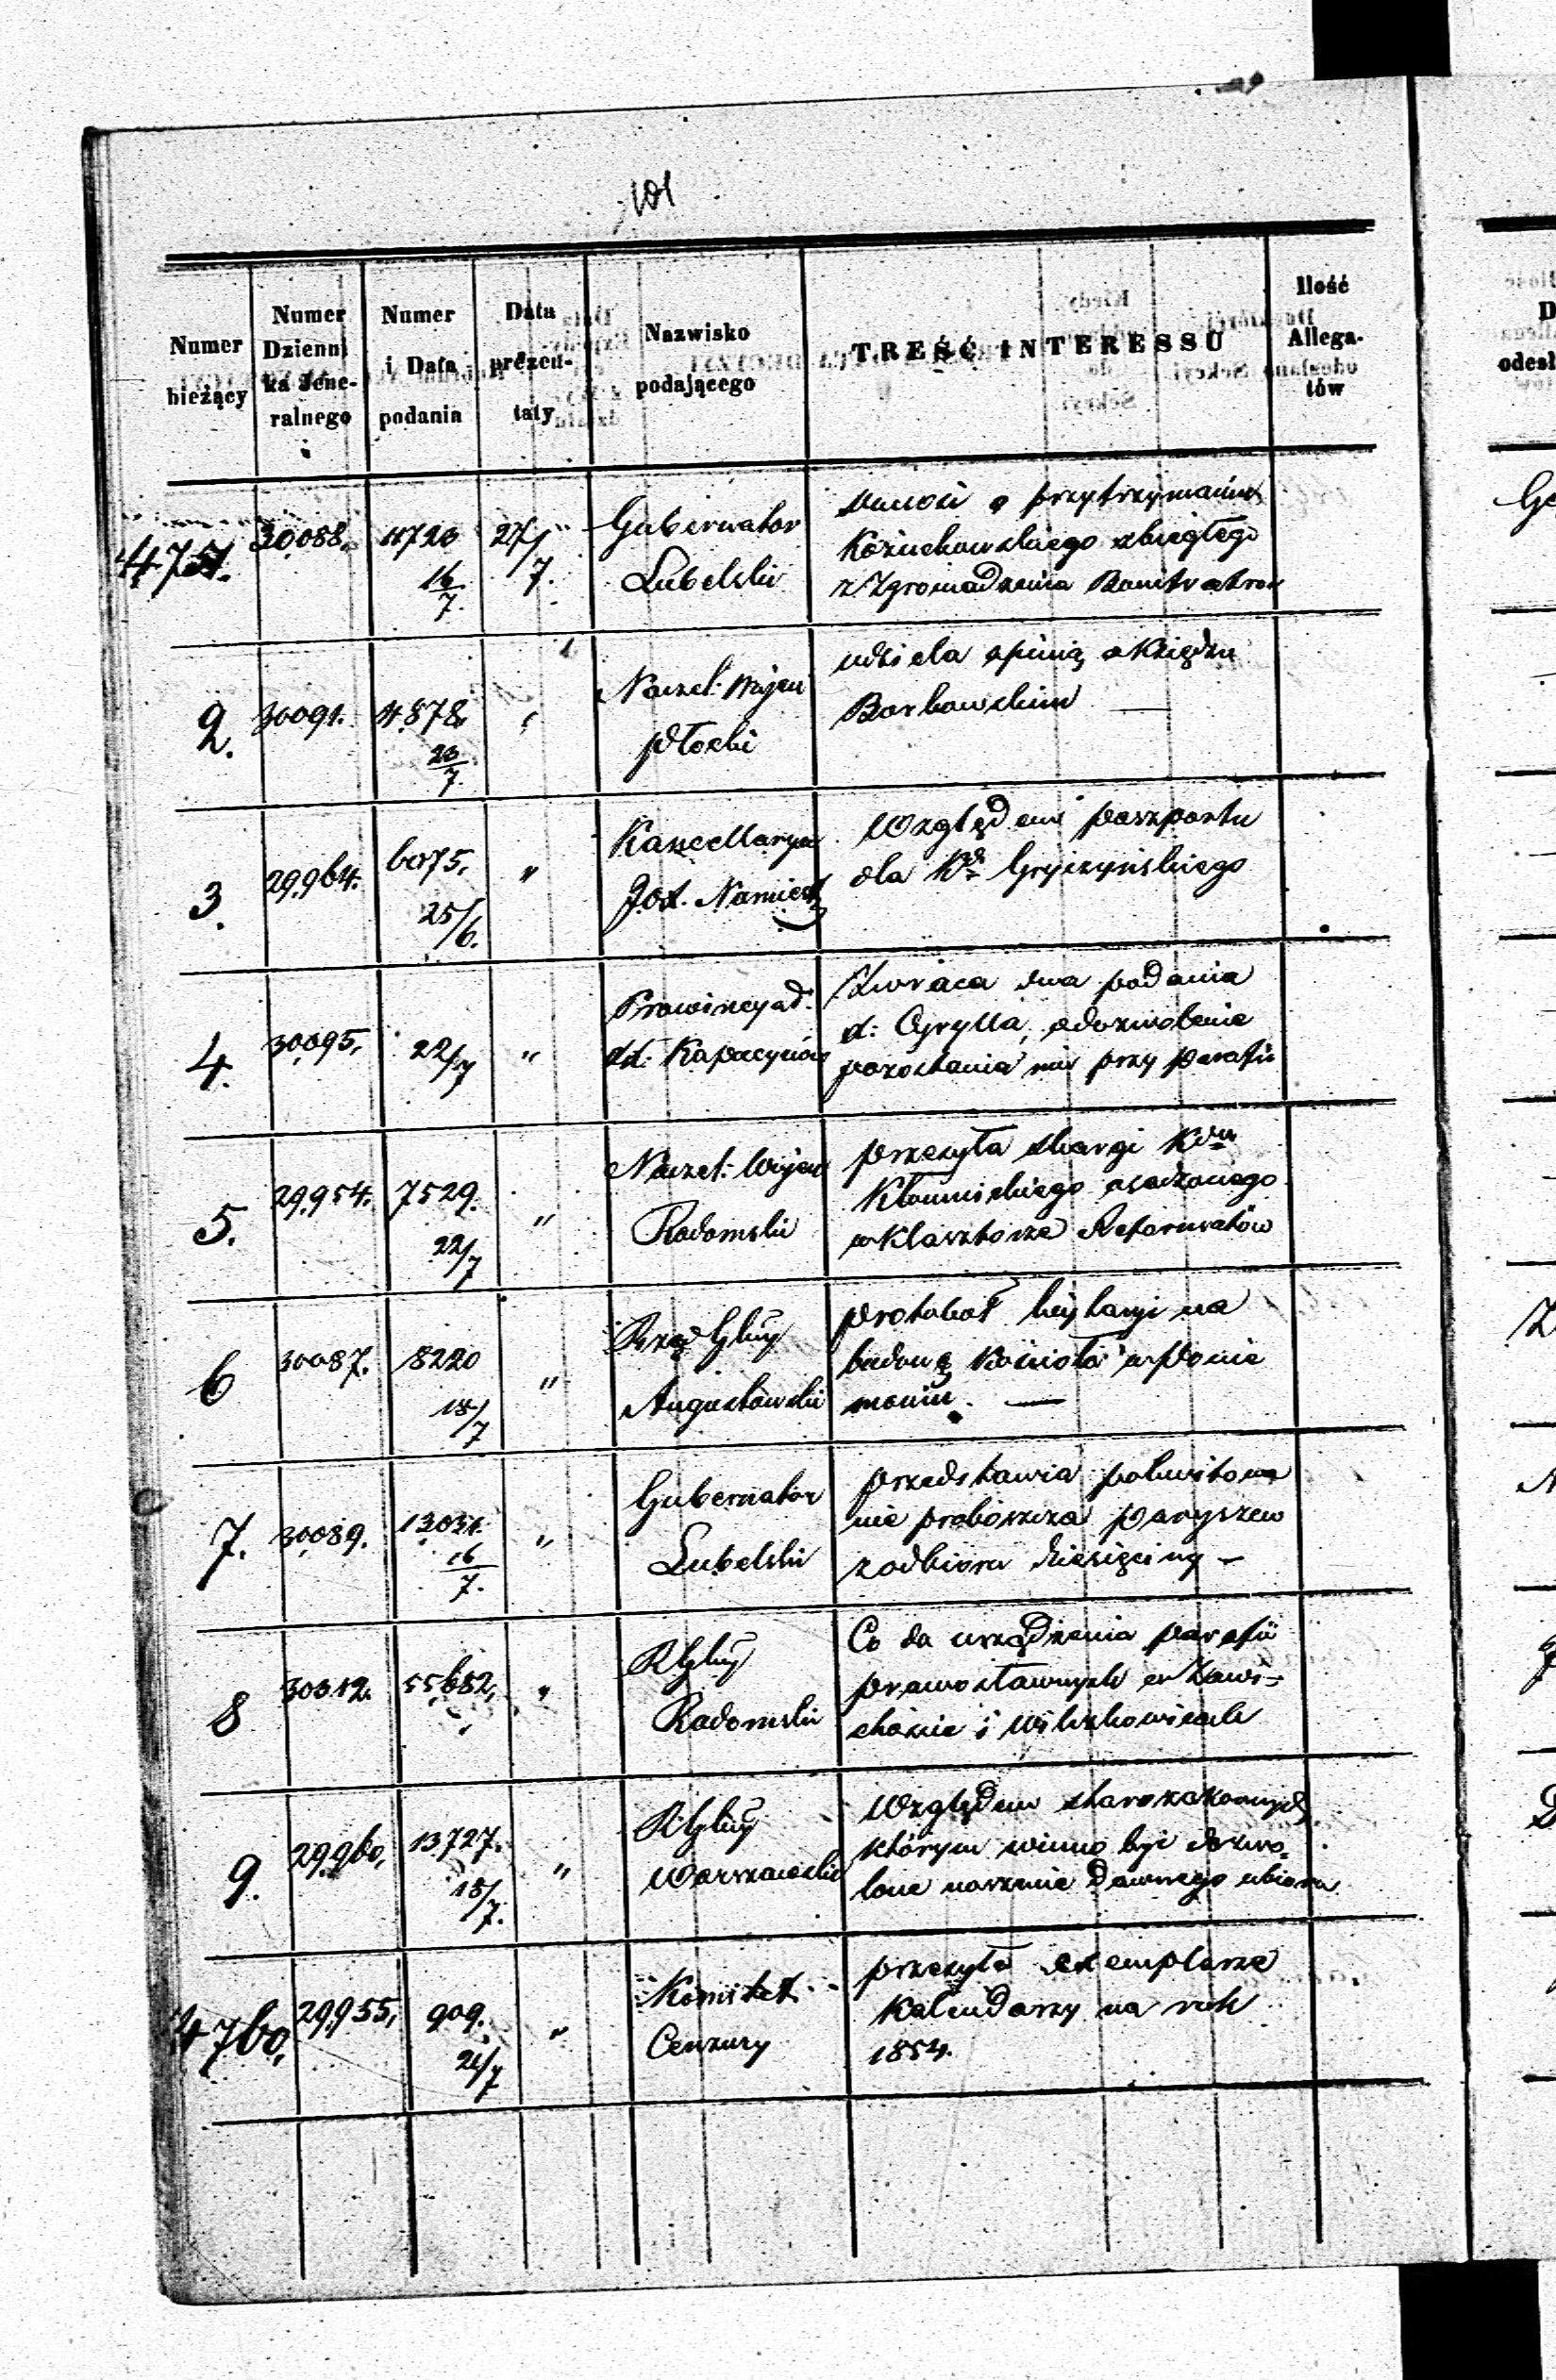 101
Numer bieżący
Numer Dzienni ka Jene- ralnego
Numer i Data podania
Data prezen- taty
Nazwisko podającego
TREŚĆ INTERESSU
Ilość Allega- tów
4751. 30088. 4720 16/7. 27/7. Gubernator Lubelski
donosi o przytrzymaniu
Kożuchowskiego zbiegłego
z Zgromadzenia
2. 30091. 4878. 23/7. " Naczel: Wojen Płocki
udziela opinią o Księdzu
Borkowskim —
3. 29,964. 6075. 25/6. " Kancellarya Jox. Namiest
Względem paszportu
dla Kdz Gryczyńskiego
4. 30095. 22/7 " Prowincyał dd. Kapucynów
Zwraca dwa podania
d: Cyrylla, o dozwolenie
pozostania mu przy parafii
5. 29,954. 7529. 22/7 " Naczel: Wojen Radomski
przesyła skargi Kdza
osadzonego
w Klasztorze Reformatów
6 30087. 18220 18/7 " Rząd Gbny Augustowski
protokoł licytacyi na
budowę Kościoła w Ponie
moniu. —
7. 30089. 13034. 16/7. " Gubernator Lubelski
przedstawia pokwitowa
nie proboszcza Paryszew
z odbioru dziesięciny —
8 30012. 55682, " RGbny Radomski
Co do urządzenia parafii
prawosławnych w Zawi-
choście i
9. 29,960, 13727. 15/7. " RGbny Warszawski
Względem starozakonnych
którym winno być dozwo-
lone noszenie dawnego ubioru
4760. 29,955, 909. 21/7 " Komitet Cenzury
przesyła exemplarze
Kalendarzy na rok
1854.
D
odesł